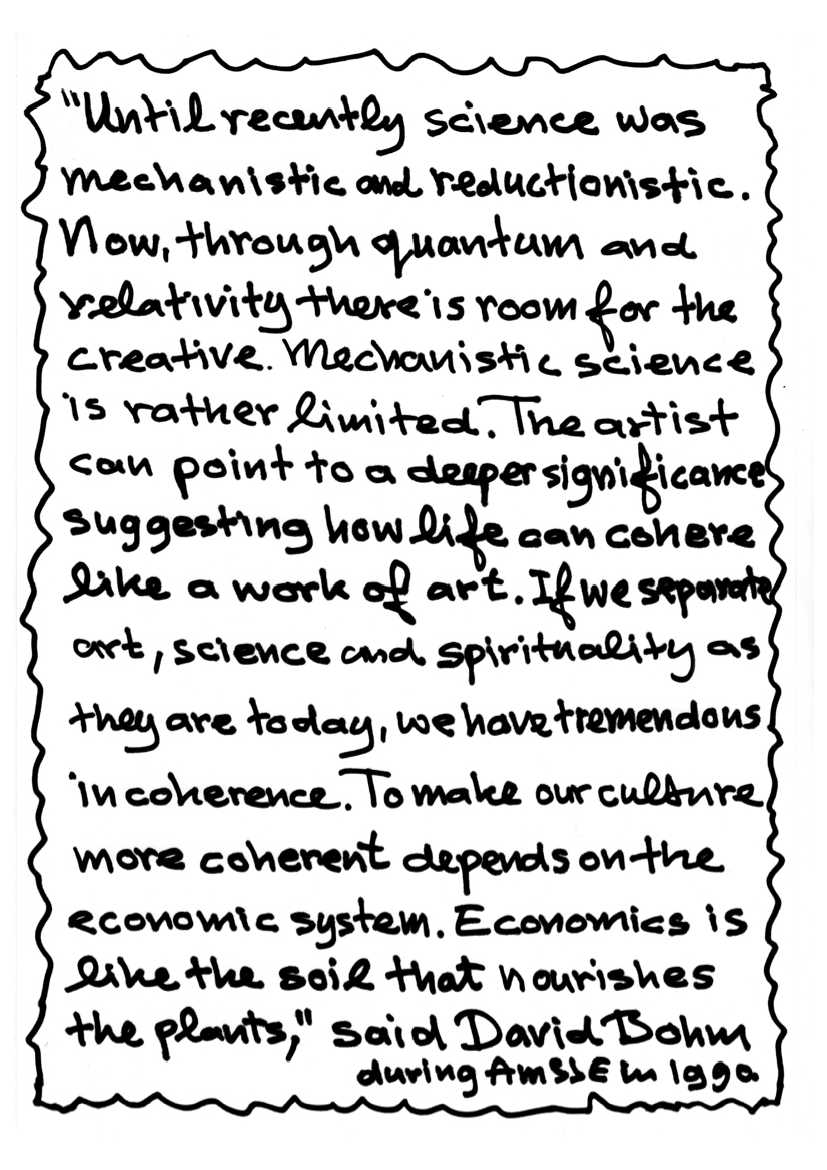 "Until recently science was
mechanistic and reductionistic.
Now, through quantum and
relativity there is room for the
creative. Mechanistic science
is rather limited. The artist
can point to a deeper significance
suggesting how life can cohere
like a work of art. If we separate
art, science and spirituality as
they are today, we have tremendous
incoherence. To make our culture
more coherent depends on the
economic system. Economics is
like the soil that nourishes
the plants," said David Bohm
during AmSSE in 1990.